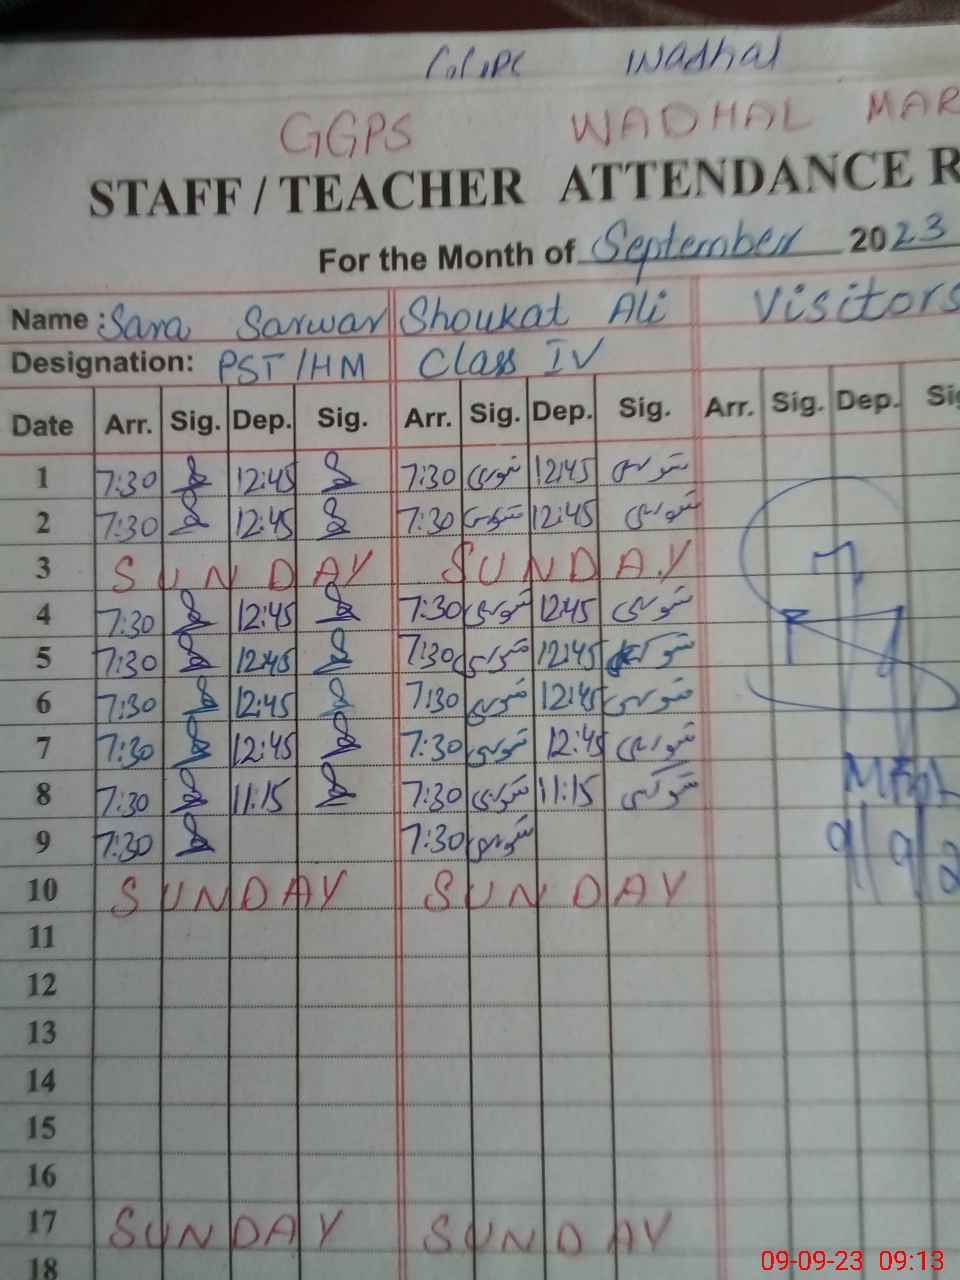 Wadhal
GGPS WADHAL MAR
STAFF / TEACHER ATTENDANCE R
For the Month of September 2023
Name : Sara Sarwar Shoukat Ali Visitors
Designation: PST/HM Class IV
Date Arr. Sig. Dep. Sig. Arr. Sig. Dep. Sig. Arr. Sig. Dep. Sig
1 7:30 12:45 7:30 12:45
2 7:30 12:45 7:30 12:45
3 SUNDAY SUNDAY
4 7:30 12:45 7:30 12:45
5 7:30 12:45 7:30 12:45
6 7:30 12:45 7:30 12:45
7 7:30 12:45 7:30 12:45
8 7:30 11:15 7:30 11:15
9 7:30 7:30 9/9/2
10 SUNDAY SUNDAY
11
12
13
14
15
16
17 SUNDAY SUNDAY
18
09-09-23 09:13